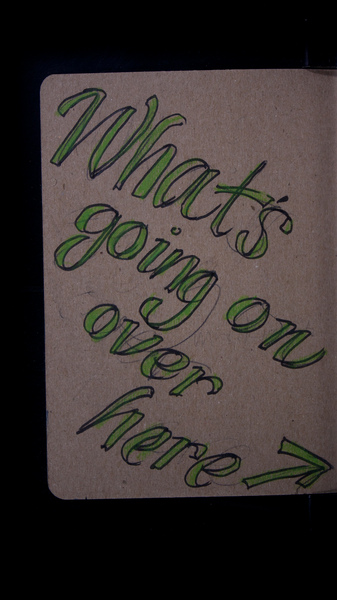 What's
going on
over
here →